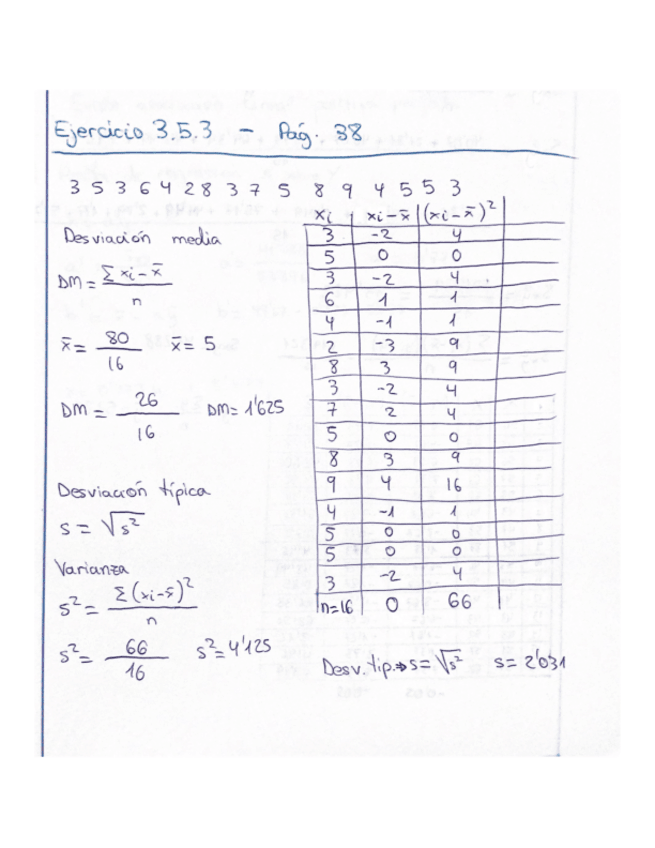 Ejercicio 3.5.3 - Pág. 38
3 5 3 6 4 2 8 3 7 5 8 9 4 5 5 3
Desviación media
DM = Σ xi - x̄ / n
x̄ = 80 / 16 x̄ = 5
DM = 26 / 16 DM = 1'625
Desviación típica
s = √s²
Varianza
s² = Σ (xi - x̄)² / n
s² = 66 / 16 s² = 4'125
xi xi - x̄ (xi - x̄)²
3 -2 4
5 0 0
3 -2 4
6 1 1
4 -1 1
2 -3 9
8 3 9
3 -2 4
7 2 4
5 0 0
8 3 9
9 4 16
4 -1 1
5 0 0
5 0 0
3 -2 4
n=16 0 66
Desv. típ. → s = √s² s = 2'031